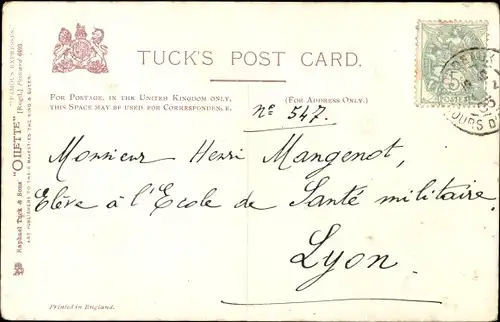 TUCK'S POST CARD.
FOR POSTAGE, IN THE UNITED KINGDOM ONLY,
THIS SPACE MAY BE USED FOR CORRESPONDENCE.
(FOR ADDRESS ONLY.)
Nº 547.
Monsieur Henri Mangenot,
Elève à l'Ecole de Santé militaire,
Lyon.
Printed in England.
Raphael Tuck & Sons' "OILETTE" [Regd.]
ART PUBLISHERS TO THEIR MAJESTIES THE KING & QUEEN.
5